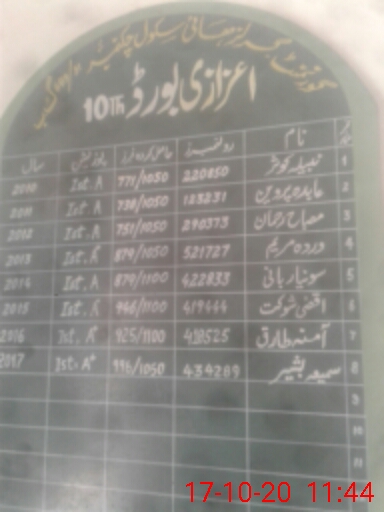 گورنمنٹ گرلز ہائی سکول
اعزازی بورڈ 10Th
نام رولنمبر حاصل کردہ نمبرز پوزیشن سال
1 نبیلہ کوثر 220850 771/1050 Ist. A 2010
2 عابدہ پروین 123231 738/1050 Ist. A 2011
3 مصباح رحمان 290373 751/1050 Ist. A 2012
4 وردہ مریم 521727 879/1050 Ist. A 2013
5 سونیا ربانی 422833 879/1100 Ist. A 2014
6 اقصیٰ شوکت 419444 946/1100 Ist. A⁺ 2015
7 آمنہ طارق 925/1100 Ist. A⁺ 2016
8 سمیعہ بشیر 434289 996/1050 Ist. A⁺ 2017
9
10
11
17-10-20 11:44